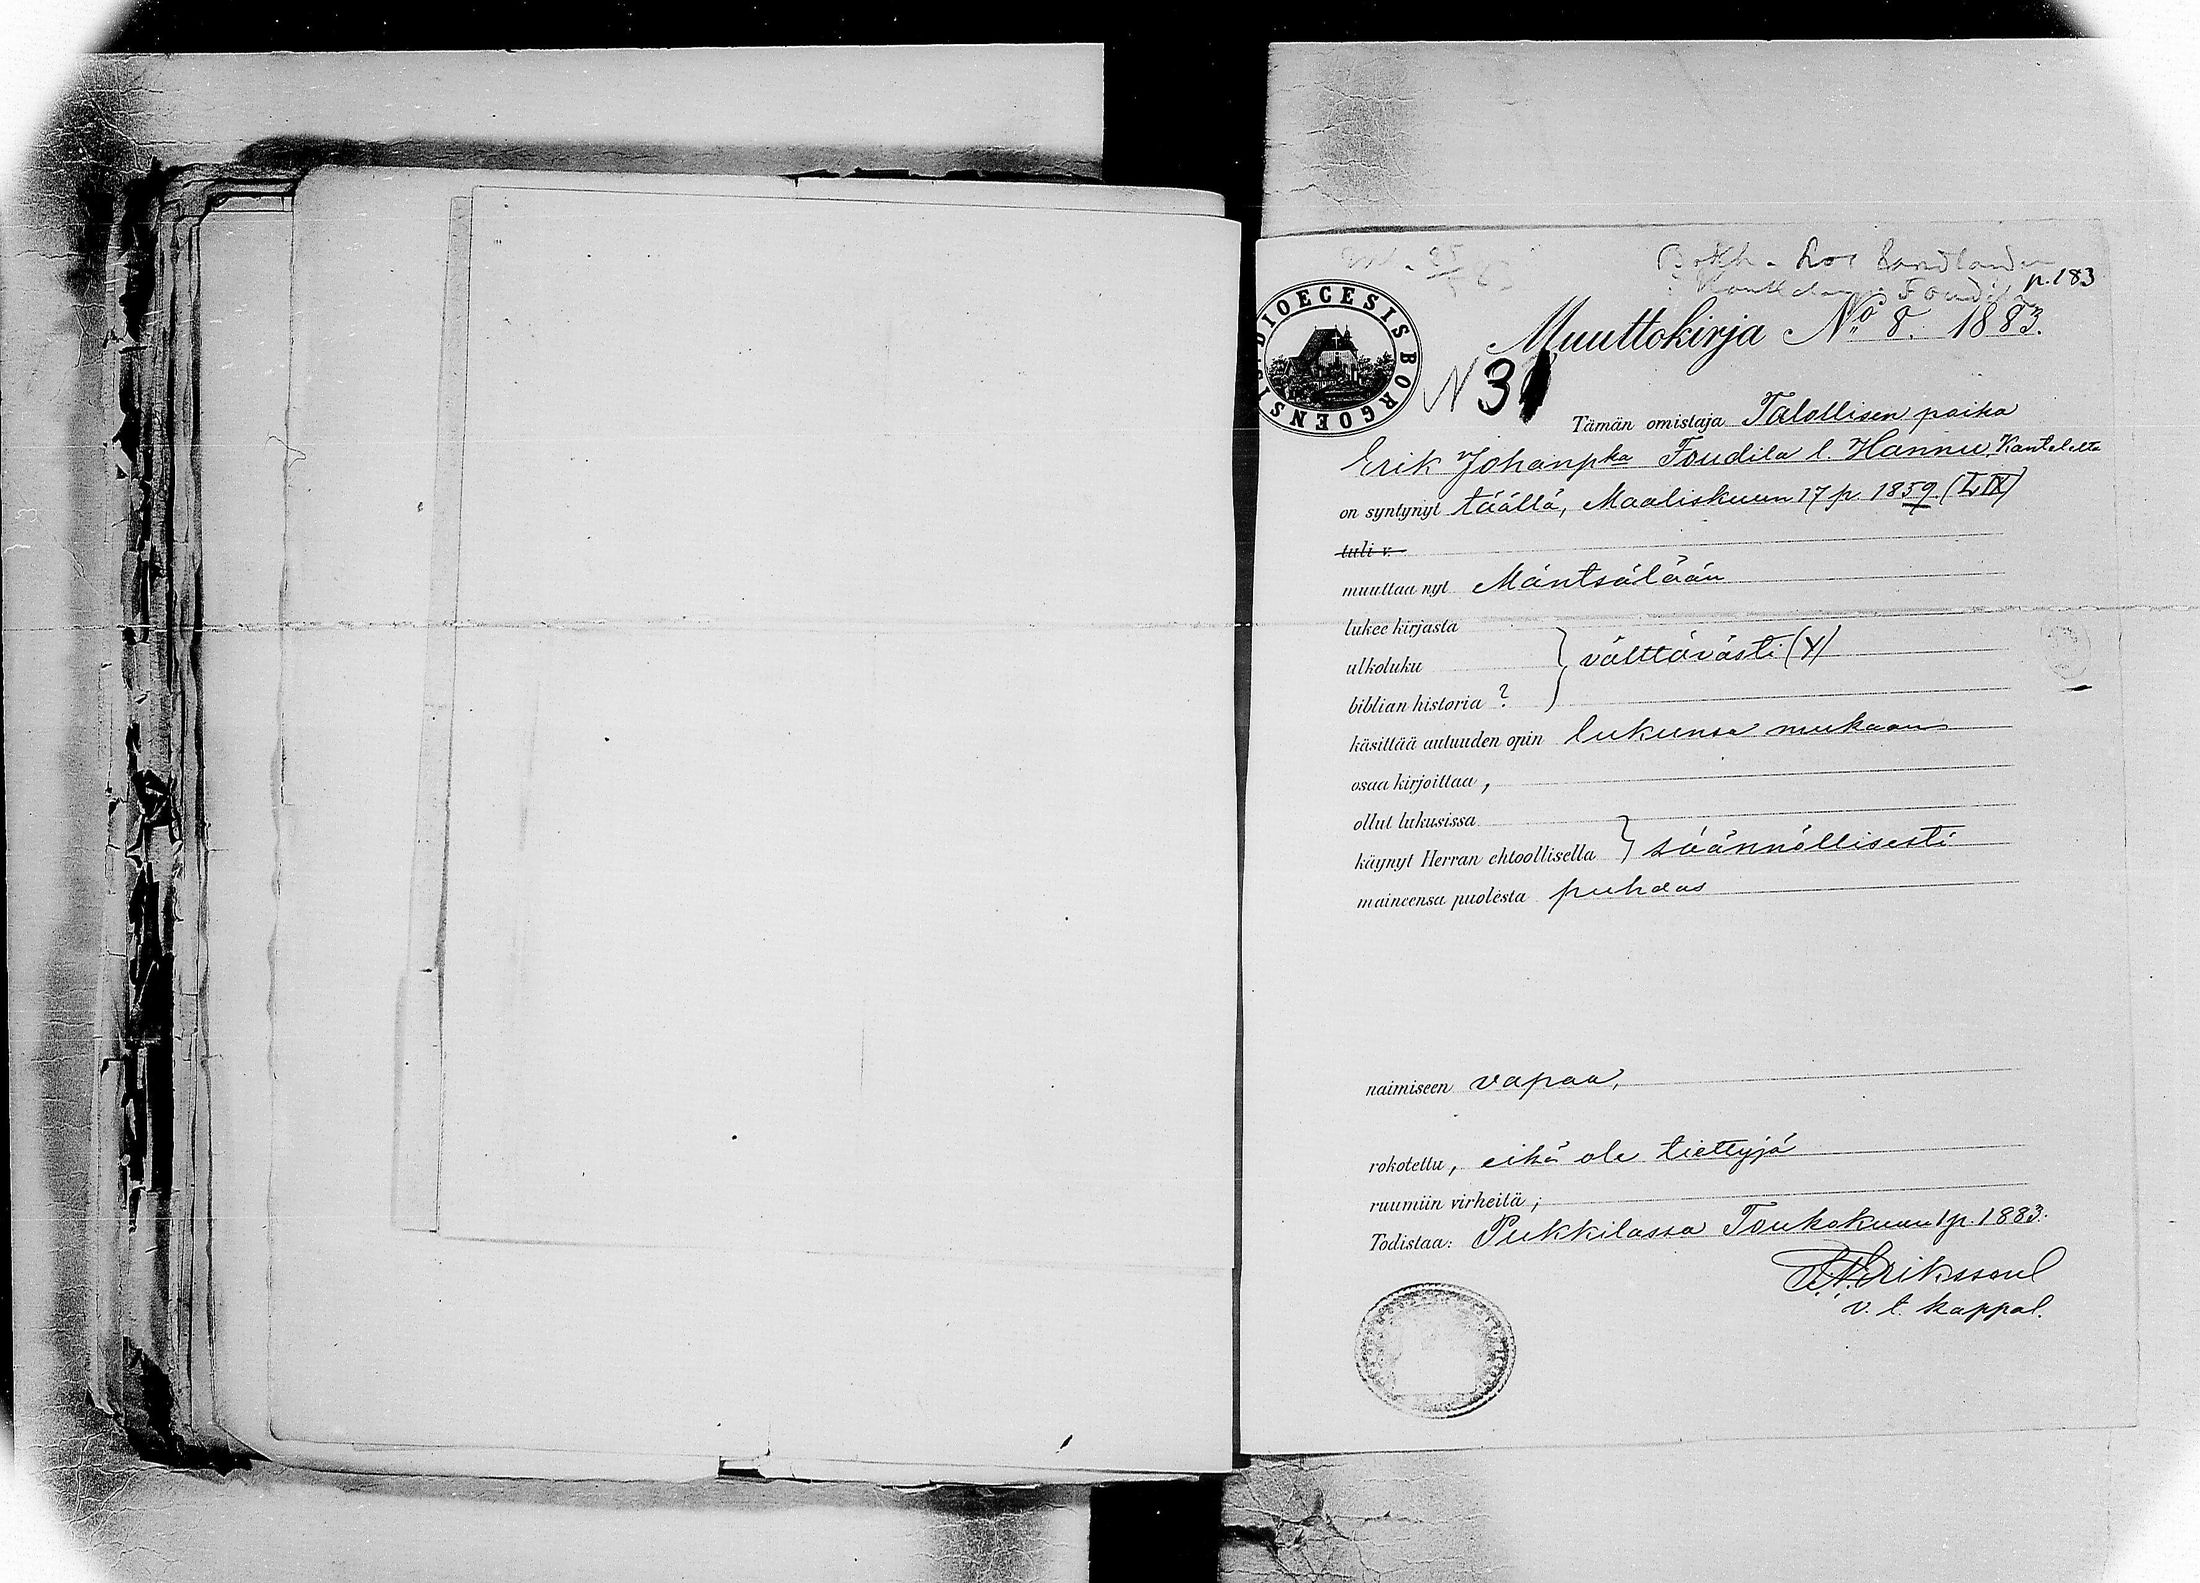 p. 183
DIOECESIS BORGOENSIS
Muuttokirja No 8. 1883.
N 31
Tämän omistaja Talollisen poika
Erik Johanpka Foudila l. Hannu, Kantelelta
on syntynyt täällä, Maaliskuun 17 p. 1859 (LIX)
tuli v.
muuttaa nyt Mäntsälään
lukee kirjasta
ulkoluku } välttävästi (Y)
biblian historia ?
käsittää autuuden opin lukunsa mukaan
osaa kirjoittaa ,
ollut lukusissa
käynyt Herran ehtoollisella } säännöllisesti
maineensa puolesta puhdas
naimiseen vapaa,
rokotettu, eikä ole tiettyjä
ruumiin virheitä ;
Todistaa: Pukkilassa Toukokuun 1 p. 1883.
Erikssoul
v. t. kappal.